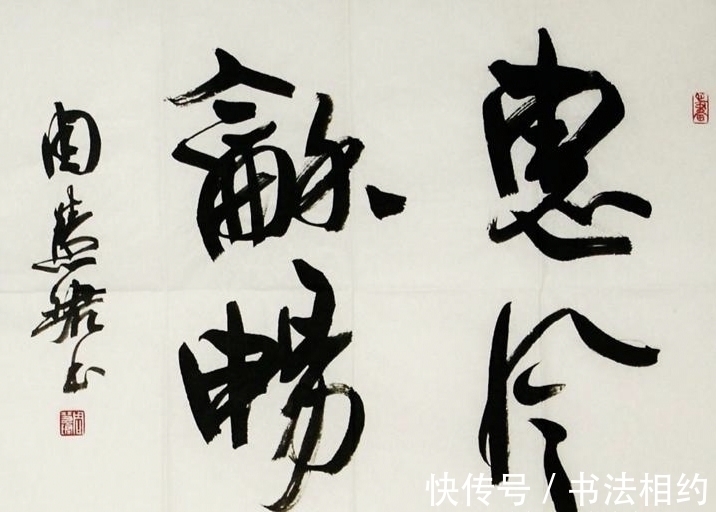 惠風
龢暢
周慧珺书
快传号/书法相约